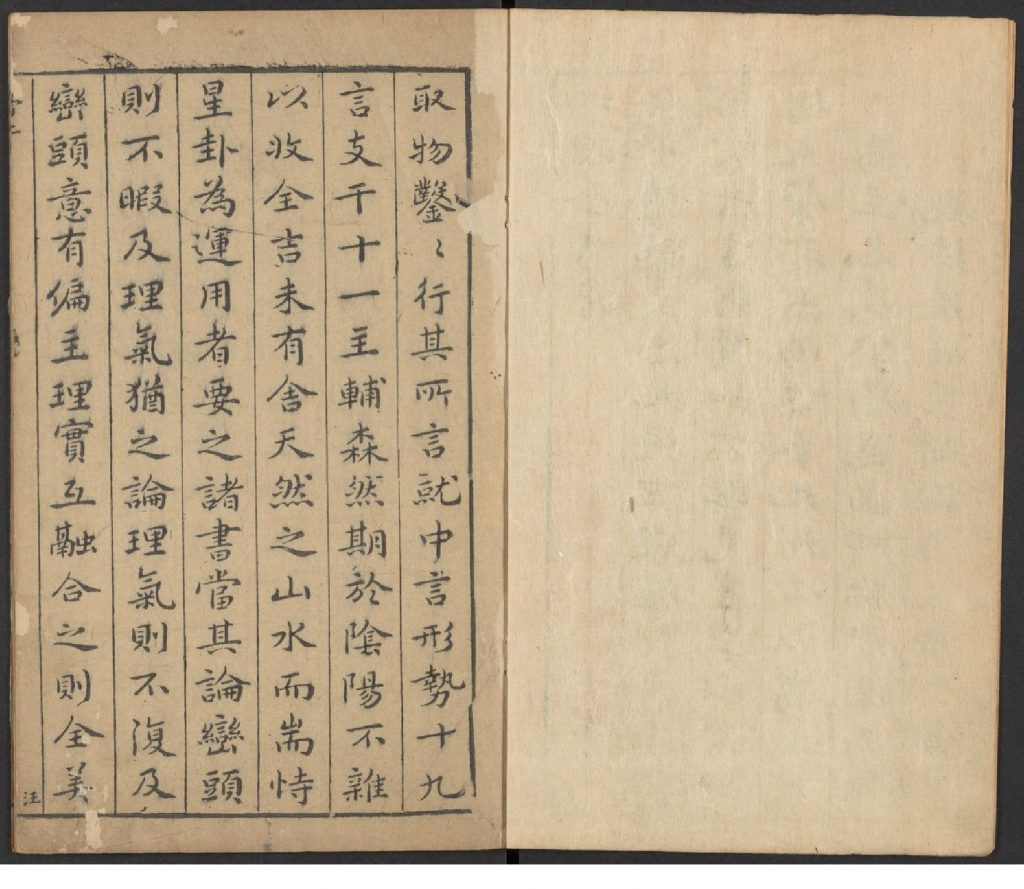 取物鑿〻行其所言就中言形勢十九
言支干十一主輔森然期於陰陽不雜
以收全吉未有舍天然之山水而耑恃
星卦為運用者要之諸書當其論巒頭
則不暇及理氣猶之論理氣則不復及
巒頭意有偏主理實互融合之則全美
汪